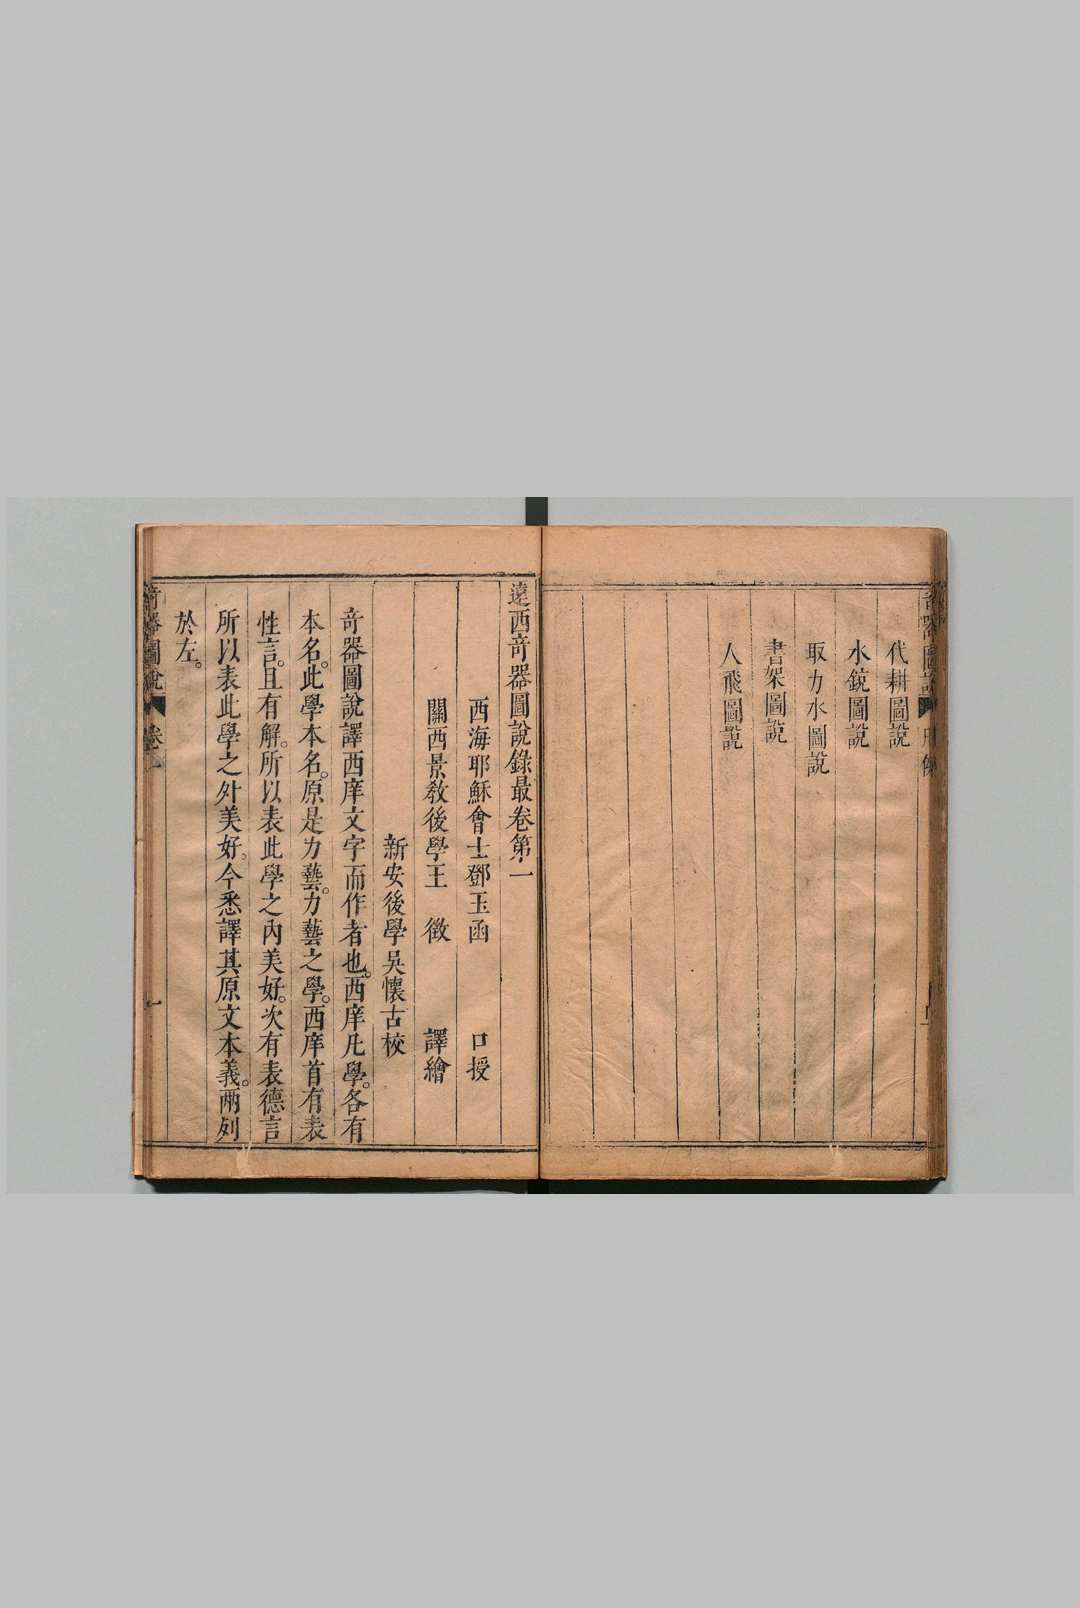 代耕圖說
水銃圖說
取力水圖說
書架圖說
人飛圖說
遠西奇器圖說錄最卷第一
西海耶穌會士鄧玉函 口授
關西景教後學王 徵 譯繪
新安後學吳懷古校
奇器圖說譯西庠文字而作者也。西庠凡學。各有
本名。此學本名。原是力藝。力藝之學。西庠首有表
性言。且有解。所以表此學之內美好。次有表德言
所以表此學之外美好。今悉譯其原文本義。兩列
於左。
奇器圖說 卷一 一